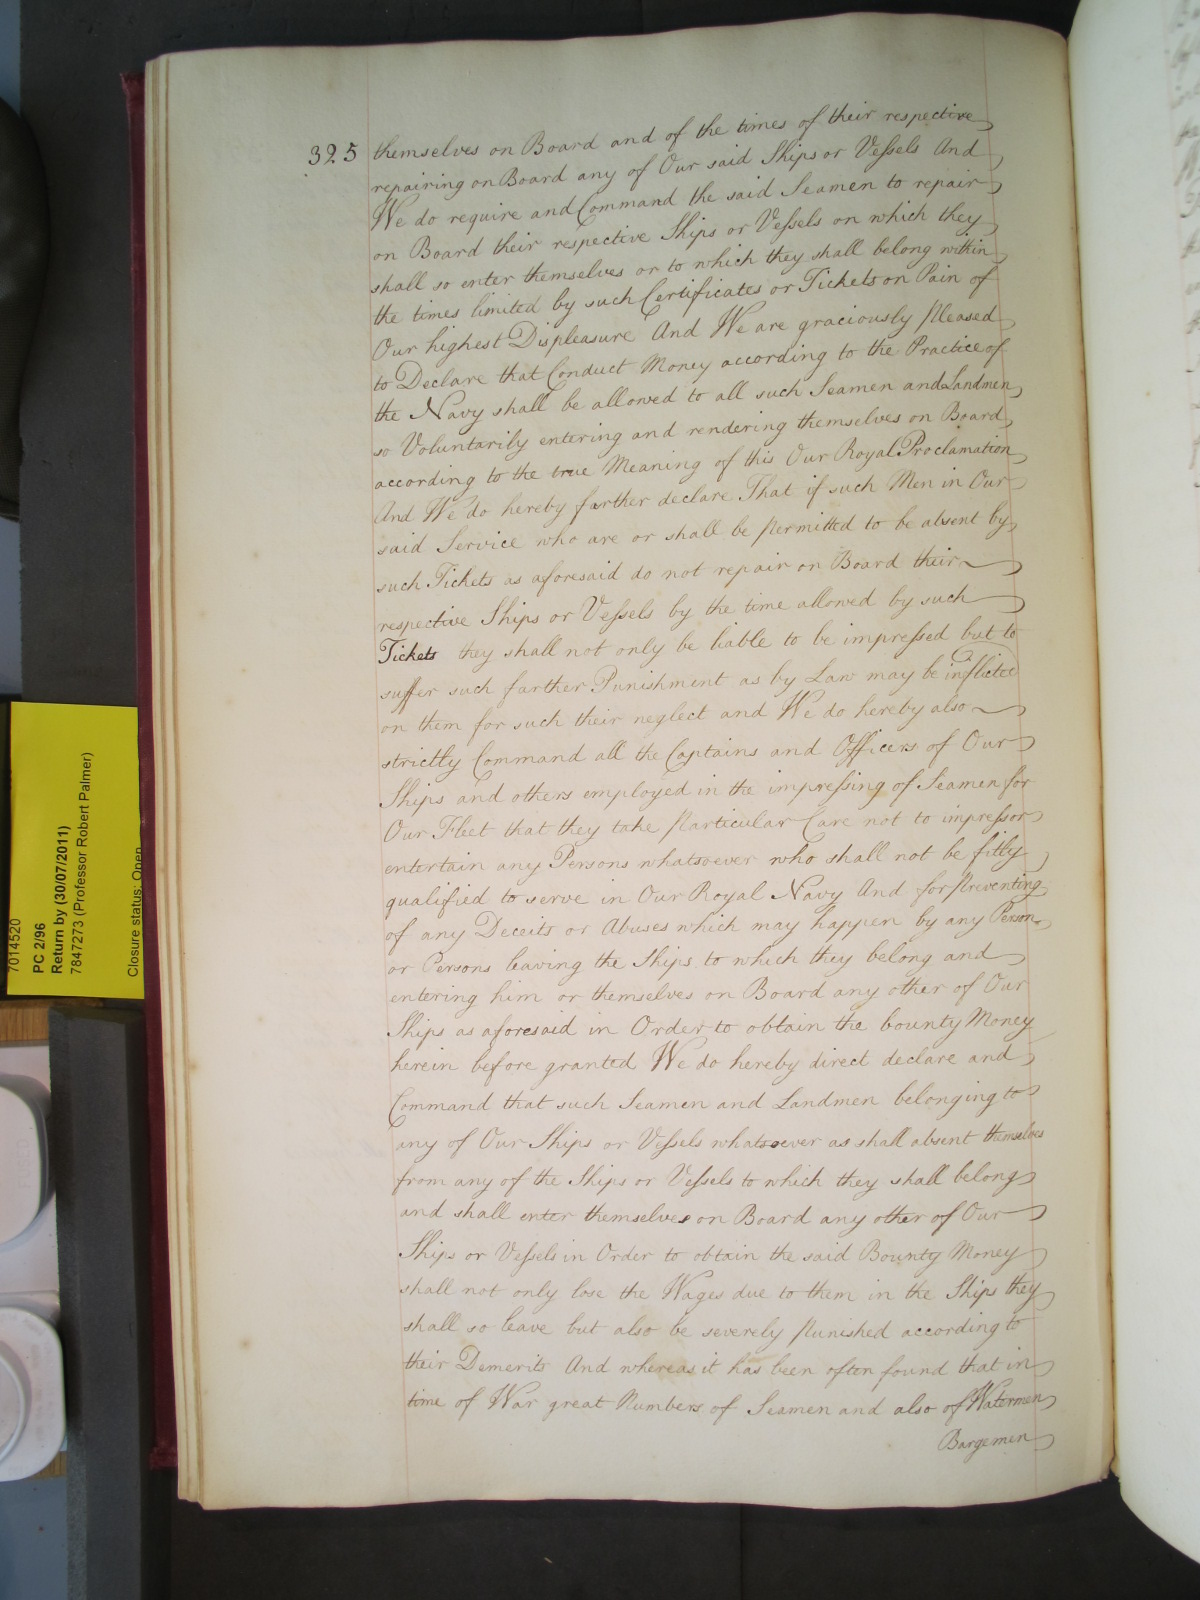 325
themselves on Board and of the times of their respective
repairing on Board any of Our said Ships or Vessels And
We do require and Command the said Seamen to repair
on Board their respective Ships or Vessels on which they
shall so enter themselves or to which they shall belong within
the times limited by such Certificates or Tickets on Pain of
Our highest Displeasure And We are graciously pleased
to Declare that Conduct Money according to the Practice of
the Navy shall be allowed to all such Seamen and Landmen
so Voluntarily entering and rendering themselves on Board
according to the true Meaning of this Our Royal Proclamation
And We do hereby farther declare That if such Men in Our
said Service who are or shall be permitted to be absent by
such Tickets as aforesaid do not repair on Board their
respective Ships or Vessels by the time allowed by such
Tickets they shall not only be liable to be impressed but to
suffer such farther Punishment as by Law may be inflicted
on them for such their neglect and We do hereby also
strictly Command all the Captains and Officers of Our
Ships and others employed in the impressing of Seamen for
Our Fleet that they take particular Care not to impress or
entertain any Persons whatsoever who shall not be fitly
qualified to serve in Our Royal Navy And for preventing
of any Deceits or Abuses which may happen by any Person
or Persons leaving the Ships to which they belong and
entering him or themselves on Board any other of Our
Ships as aforesaid in Order to obtain the bounty Money
herein before granted We do hereby direct declare and
Command that such Seamen and Landmen belonging to
any of Our Ships or Vessels whatsoever as shall absent themselves
from any of the Ships or Vessels to which they shall belong
and shall enter themselves on Board any other of Our
Ships or Vessels in Order to obtain the said Bounty Money
shall not only lose the Wages due to them in the Ships they
shall so leave but also be severely punished according to
their Demerits And whereas it has been often found that in
time of War great Numbers of Seamen and also of Watermen
Bargemen
7014520
PC 2/96
Return by (30/07/2011)
7847273 (Professor Robert Palmer)
Closure status: Open